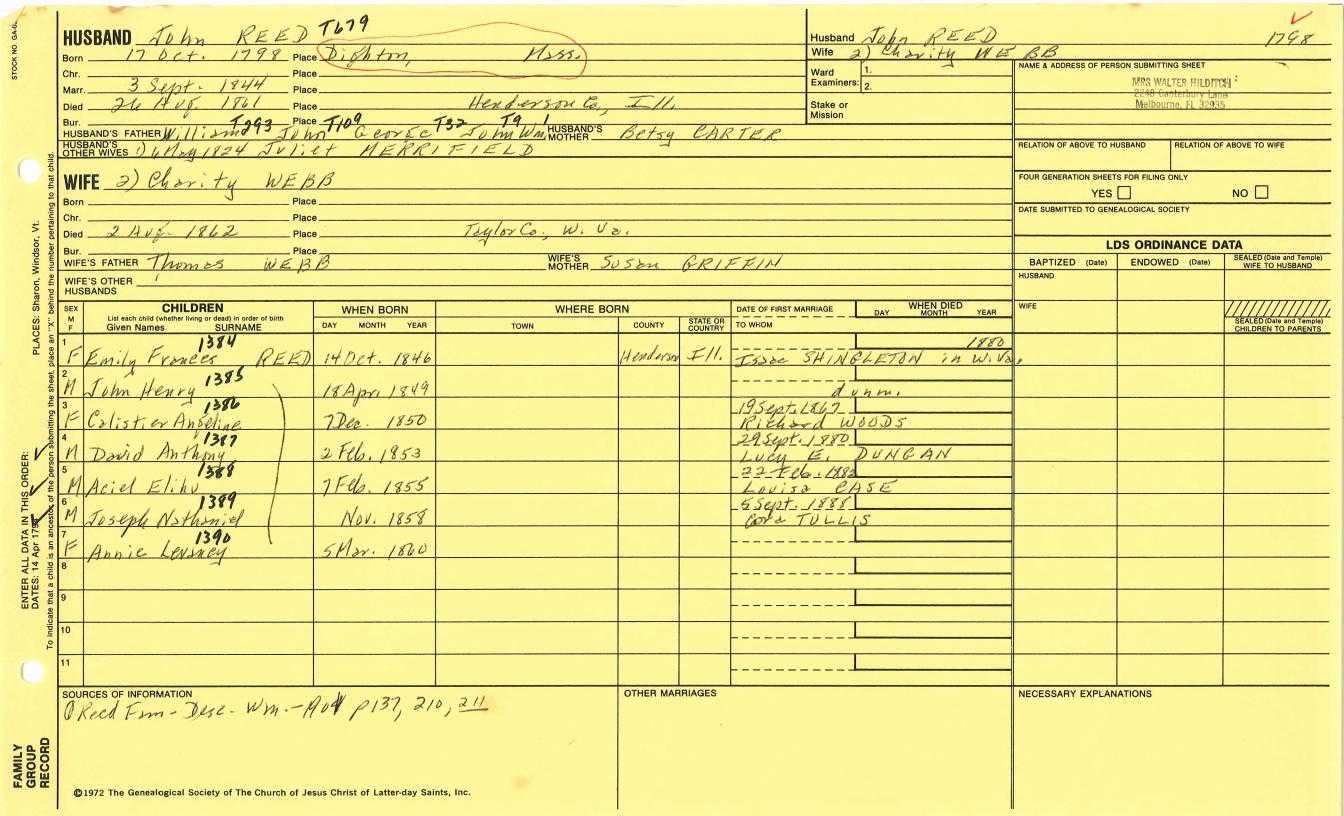 STOCK NO. GA-6L
HUSBAND John REED T679
Born 17 Oct. 1798 Place Dighton, Mass.
Chr. Place
Marr. 3 Sept. 1844 Place
Died 26 Aug. 1861 Place Henderson Co., Ill.
Bur. Place
HUSBAND'S FATHER William T293 John T109 George T32 John T9 Wm. 1 HUSBAND'S MOTHER Betsy CARTER
HUSBAND'S OTHER WIVES 1) 6 May 1824 Juliet MERRIFIELD
Husband John REED 1798
Wife 2) Charity WEBB
Ward Examiners: 1. 2.
Stake or Mission
NAME & ADDRESS OF PERSON SUBMITTING SHEET
MRS WALTER HILDITCH
2248 Canterbury Lane
Melbourne, FL 32935
RELATION OF ABOVE TO HUSBAND RELATION OF ABOVE TO WIFE
FOUR GENERATION SHEETS FOR FILING ONLY
YES NO
DATE SUBMITTED TO GENEALOGICAL SOCIETY
WIFE 2) Charity WEBB
Born Place
Chr. Place
Died 2 Aug. 1862 Place Taylor Co., W. Va.
Bur. Place
WIFE'S FATHER Thomas WEBB WIFE'S MOTHER Susan GRIFFIN
WIFE'S OTHER HUSBANDS
LDS ORDINANCE DATA
BAPTIZED (Date) ENDOWED (Date) SEALED (Date and Temple) WIFE TO HUSBAND
HUSBAND
WIFE
SEALED (Date and Temple) CHILDREN TO PARENTS
SEX M F CHILDREN WHEN BORN WHERE BORN DATE OF FIRST MARRIAGE WHEN DIED
List each child (whether living or dead) in order of birth
Given Names SURNAME DAY MONTH YEAR TOWN COUNTY STATE OR COUNTRY TO WHOM DAY MONTH YEAR
1 1384 1880
F Emily Frances REED 14 Oct. 1846 Henderson Ill. Isaac SHINGLETON in W. Va.
2 1385
M John Henry 18 Apr. 1849 d unm.
3 1386 19 Sept. 1867
F Calistier Angeline 7 Dec. 1850 Richard WOODS
4 1387 29 Sept. 1880
M David Anthony 2 Feb. 1853 Lucy E. DUNCAN
5 1388 22 Feb. 1882
M Aciel Elihu 7 Feb. 1855 Louisa CASE
6 1389 5 Sept. 1888
M Joseph Nathaniel Nov. 1858 Cora TULLIS
7 1390
F Annie 5 Mar. 1860
8
9
10
11
SOURCES OF INFORMATION
Reed Fam- Desc- Wm.- p137, 210, 211
OTHER MARRIAGES
NECESSARY EXPLANATIONS
©1972 The Genealogical Society of The Church of Jesus Christ of Latter-day Saints, Inc.
FAMILY GROUP RECORD
ENTER ALL DATA IN THIS ORDER:
DATES: 14 Apr PLACES: Sharon, Windsor, Vt.
To indicate that a child is an ancestor of the person submitting the sheet, place an "X" behind the number pertaining to that child.